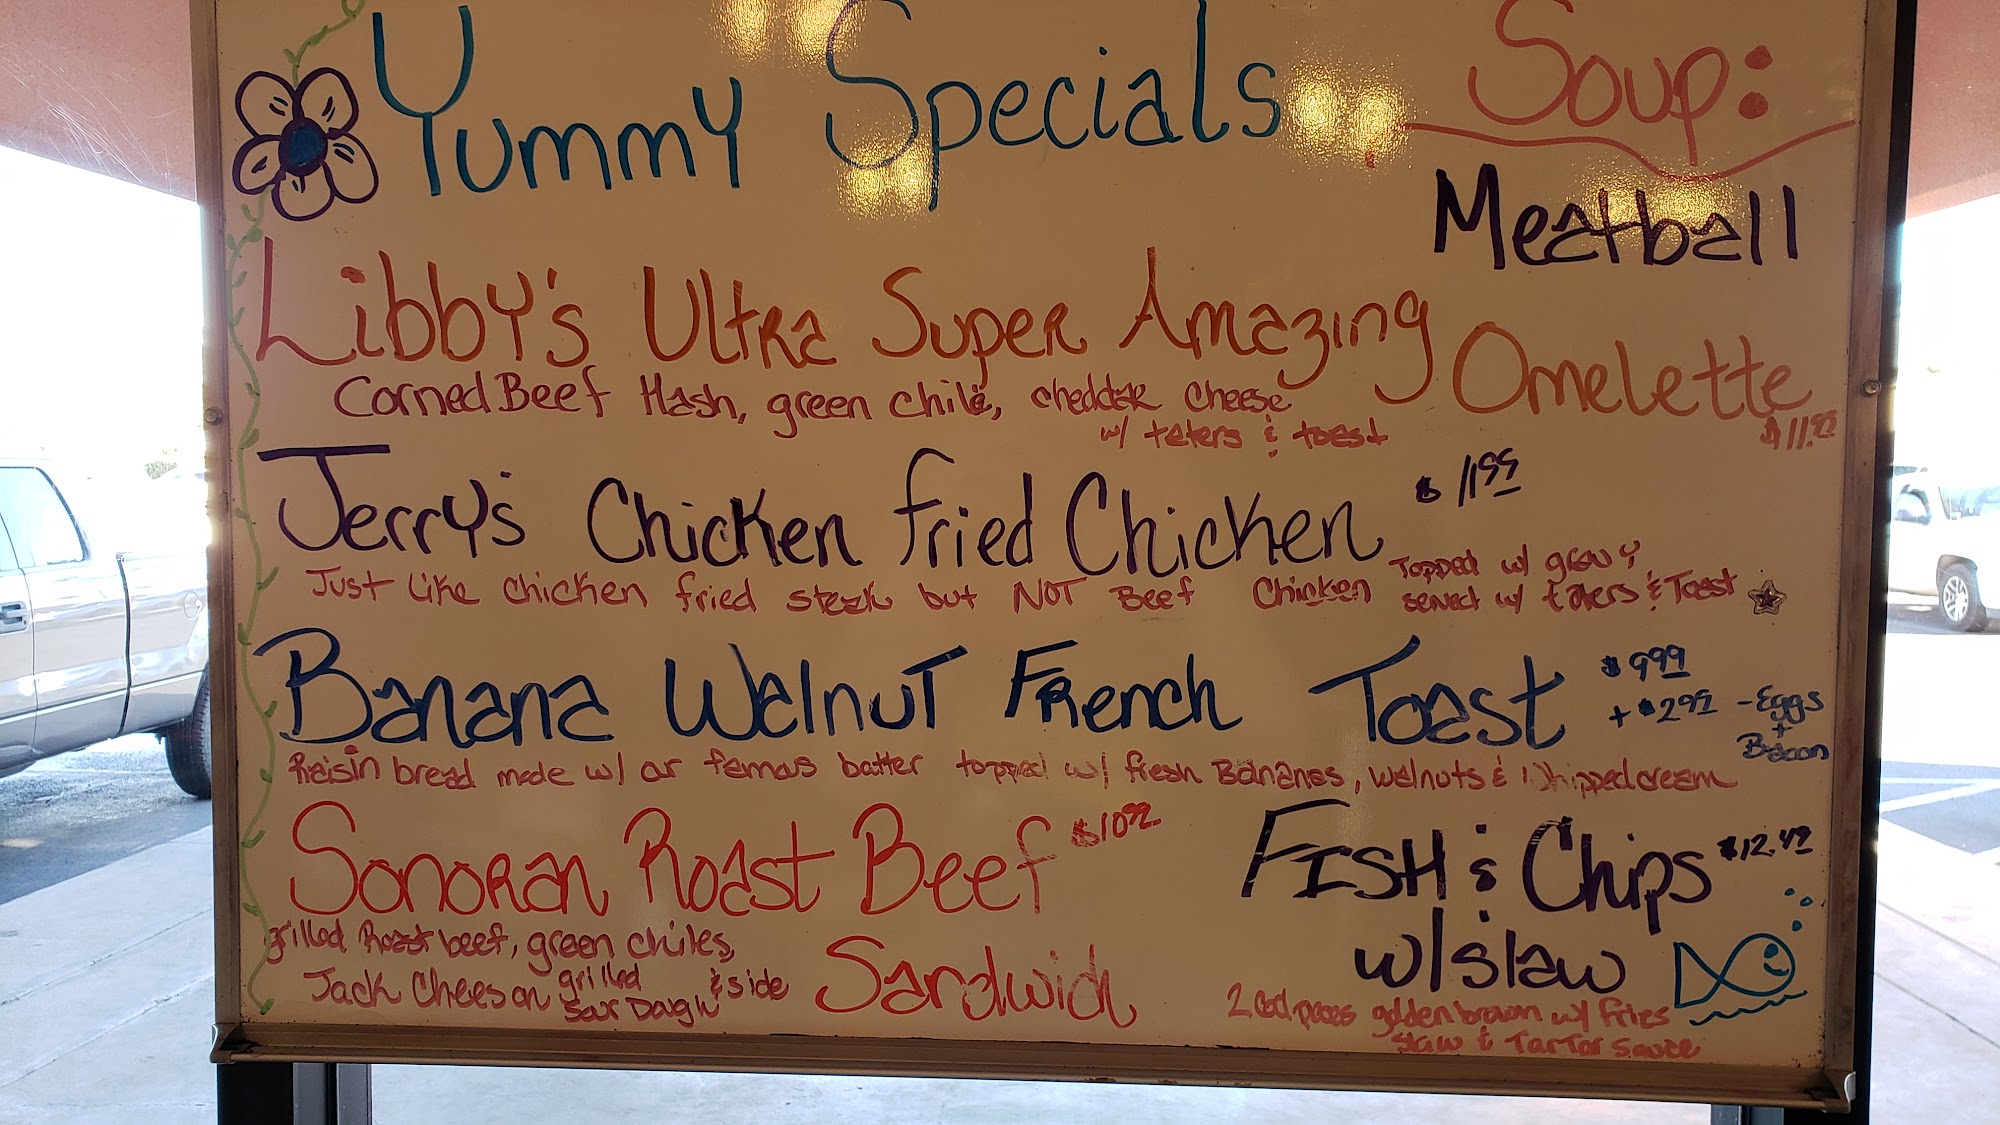 Yummy Specials
Soup:
Meatball
Libby's Ultra Super Amazing Omelette
$11.99
Corned Beef Hash, green chile, cheddar cheese
w/ taters & toast
Jerry's Chicken fried Chicken $11.99
Just like chicken fried steak but NOT Beef Chicken Topped w/ gravy
served w/ taters & Toast
Banana Walnut French Toast $9.99
+ $2.99 - Eggs
+
Bacon
Raisin bread made w/ or famous batter topped w/ fresh Bananas, walnuts & Whipped cream
Sonoran Roast Beef $10.99
Sandwich
grilled Roast beef, green chiles,
Jack Chees on grilled
Sour Dough & side
FISH & Chips $12.49
w/slaw
2 Cod pieces golden brown w/ fries
slaw & TarTar sauce